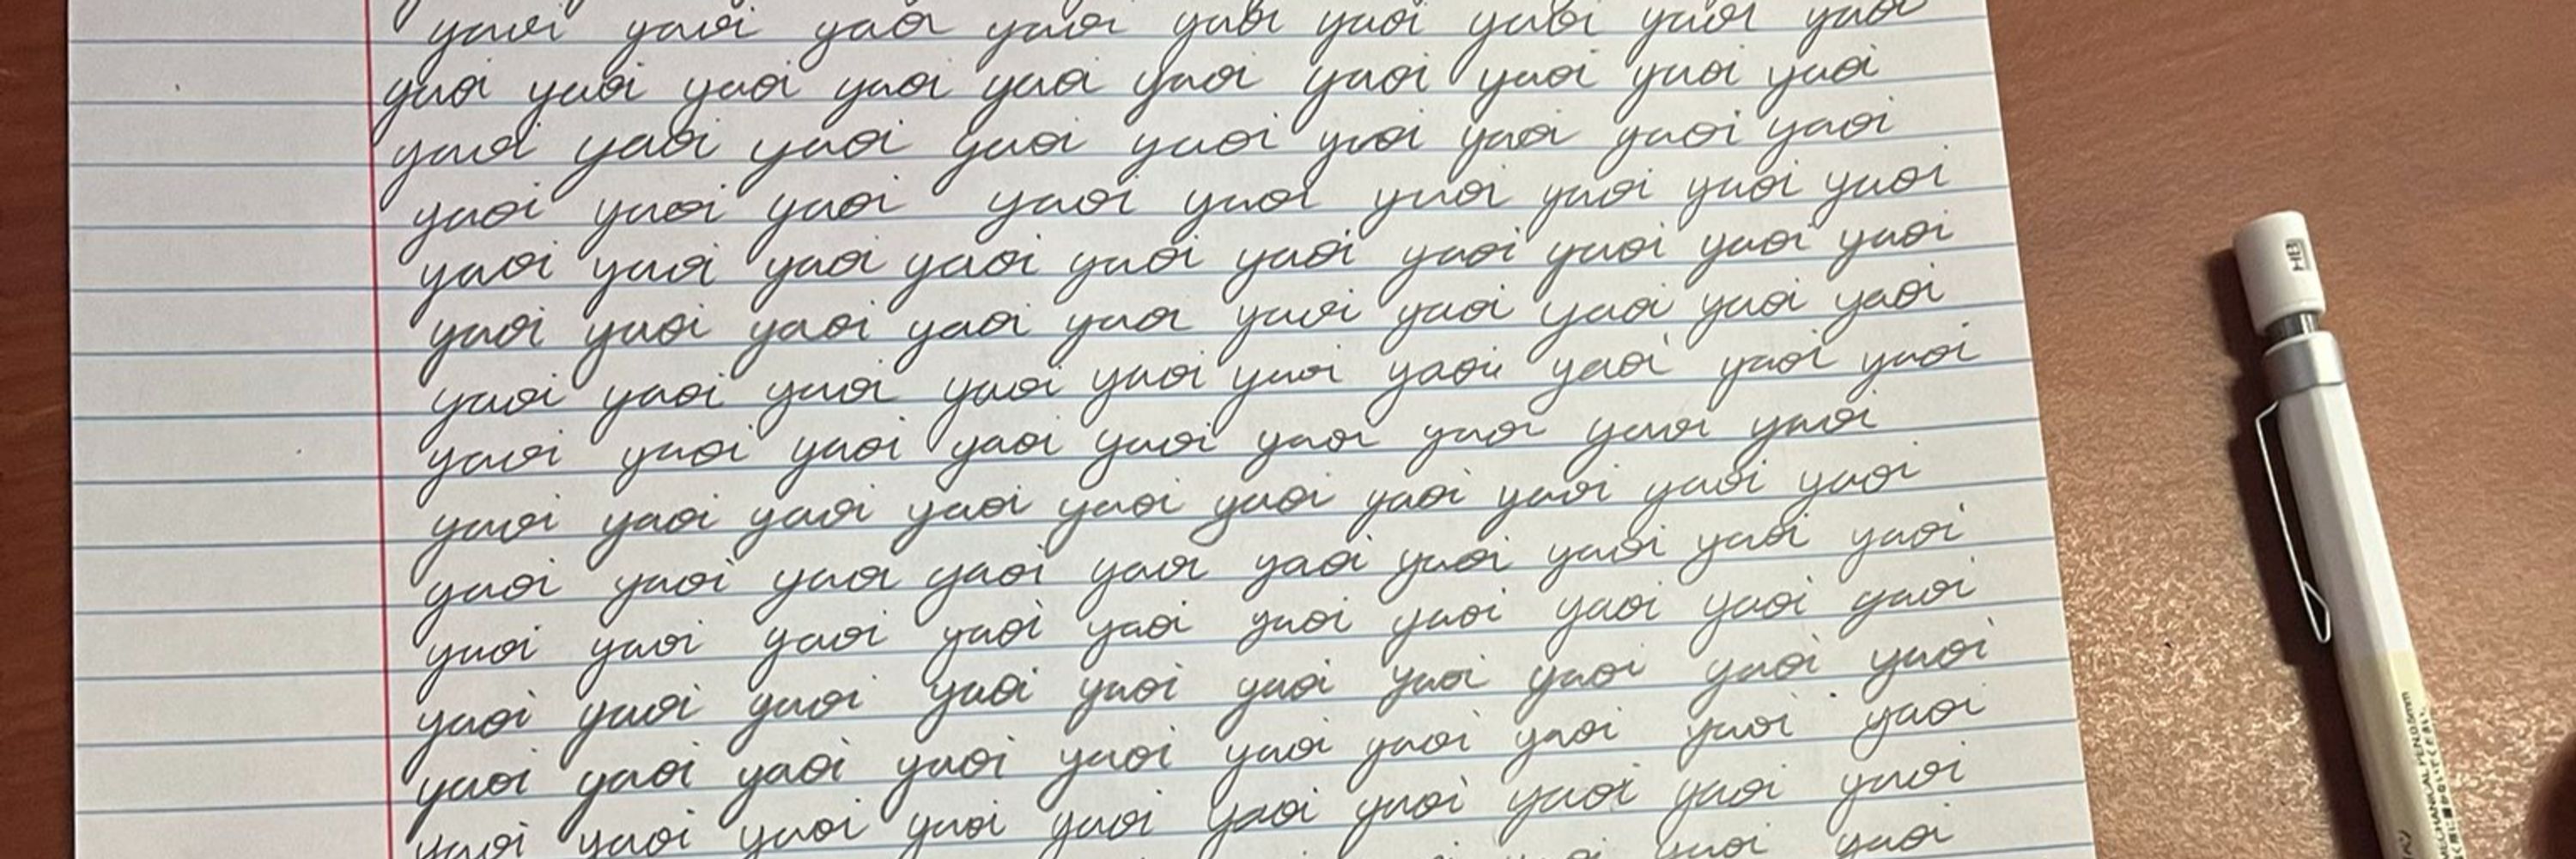 yaoi yaoi yaoi yaoi yaoi yaoi yaoi yaoi yaoi
yaoi yaoi yaoi yaoi yaoi yaoi yaoi yaoi yaoi yaoi
yaoi yaoi yaoi yaoi yaoi yaoi yaoi yaoi yaoi
yaoi yaoi yaoi yaoi yaoi yaoi yaoi yaoi yaoi
yaoi yaoi yaoi yaoi yaoi yaoi yaoi yaoi yaoi yaoi
yaoi yaoi yaoi yaoi yaoi yaoi yaoi yaoi yaoi yaoi
yaoi yaoi yaoi yaoi yaoi yaoi yaoi yaoi yaoi yaoi
yaoi yaoi yaoi yaoi yaoi yaoi yaoi yaoi yaoi
yaoi yaoi yaoi yaoi yaoi yaoi yaoi yaoi yaoi yaoi
yaoi yaoi yaoi yaoi yaoi yaoi yaoi yaoi yaoi yaoi
yaoi yaoi yaoi yaoi yaoi yaoi yaoi yaoi yaoi yaoi
yaoi yaoi yaoi yaoi yaoi yaoi yaoi yaoi yaoi yaoi
yaoi yaoi yaoi yaoi yaoi yaoi yaoi yaoi yaoi yaoi
yaoi yaoi yaoi yaoi yaoi yaoi yaoi yaoi yaoi yaoi
yaoi yaoi
HB
MECHANICAL PEN 0.5mm